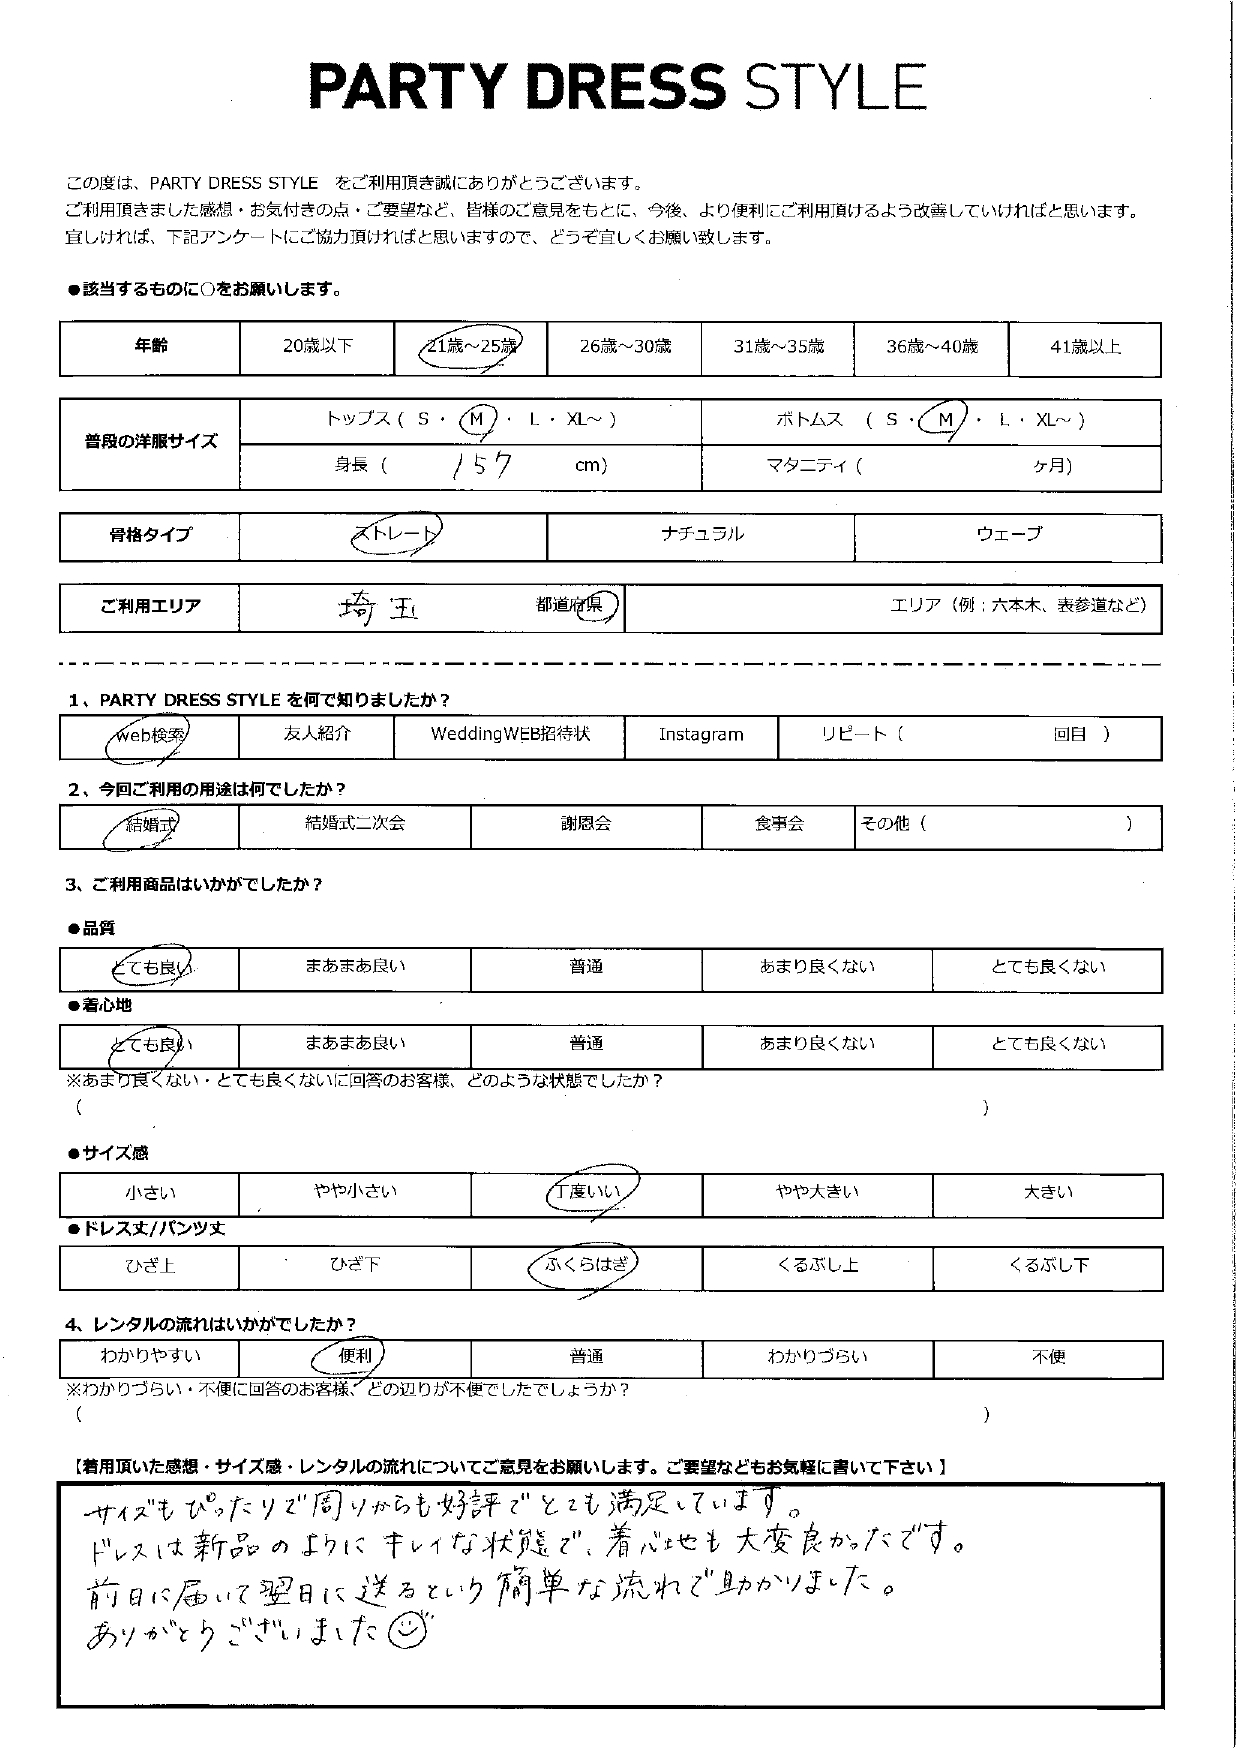 PARTY DRESS STYLE
この度は、PARTY DRESS STYLE をご利用頂き誠にありがとうございます。
ご利用頂きました感想・お気付きの点・ご要望など、皆様のご意見をもとに、今後、より便利にご利用頂けるよう改善していければと思います。
宜しければ、下記アンケートにご協力頂ければと思いますので、どうぞ宜しくお願い致します。
●該当するものに○をお願いします。
年齢 20歳以下 21歳～25歳 26歳～30歳 31歳～35歳 36歳～40歳 41歳以上
普段の洋服サイズ
トップス ( S ・ M ・ L ・ XL～ ) ボトムス ( S ・ M ・ L ・ XL～ )
身長 ( 157 cm) マタニティ ( ヶ月)
骨格タイプ ストレート ナチュラル ウェーブ
ご利用エリア 埼玉 都道府県 エリア（例；六本木、表参道など）
1、PARTY DRESS STYLE を何で知りましたか？
web検索 友人紹介 WeddingWEB招待状 Instagram リピート（ 回目 ）
2、今回ご利用の用途は何でしたか？
結婚式 結婚式二次会 謝恩会 食事会 その他（ ）
3、ご利用商品はいかがでしたか？
●品質
とても良い まあまあ良い 普通 あまり良くない とても良くない
●着心地
とても良い まあまあ良い 普通 あまり良くない とても良くない
※あまり良くない・とても良くないに回答のお客様、どのような状態でしたか？
（ ）
●サイズ感
小さい やや小さい 丁度いい やや大きい 大きい
●ドレス丈/パンツ丈
ひざ上 ひざ下 ふくらはぎ くるぶし上 くるぶし下
4、レンタルの流れはいかがでしたか？
わかりやすい 便利 普通 わかりづらい 不便
※わかりづらい・不便に回答のお客様、どの辺りが不便でしたでしょうか？
（ ）
【着用頂いた感想・サイズ感・レンタルの流れについてご意見をお願いします。ご要望などもお気軽に書いて下さい】
サイズもぴったりで周りからも好評でとても満足しています。
ドレスは新品のようにキレイな状態で、着心地も大変良かったです。
前日に届いて翌日に送るという簡単な流れで助かりました。
ありがとうございました